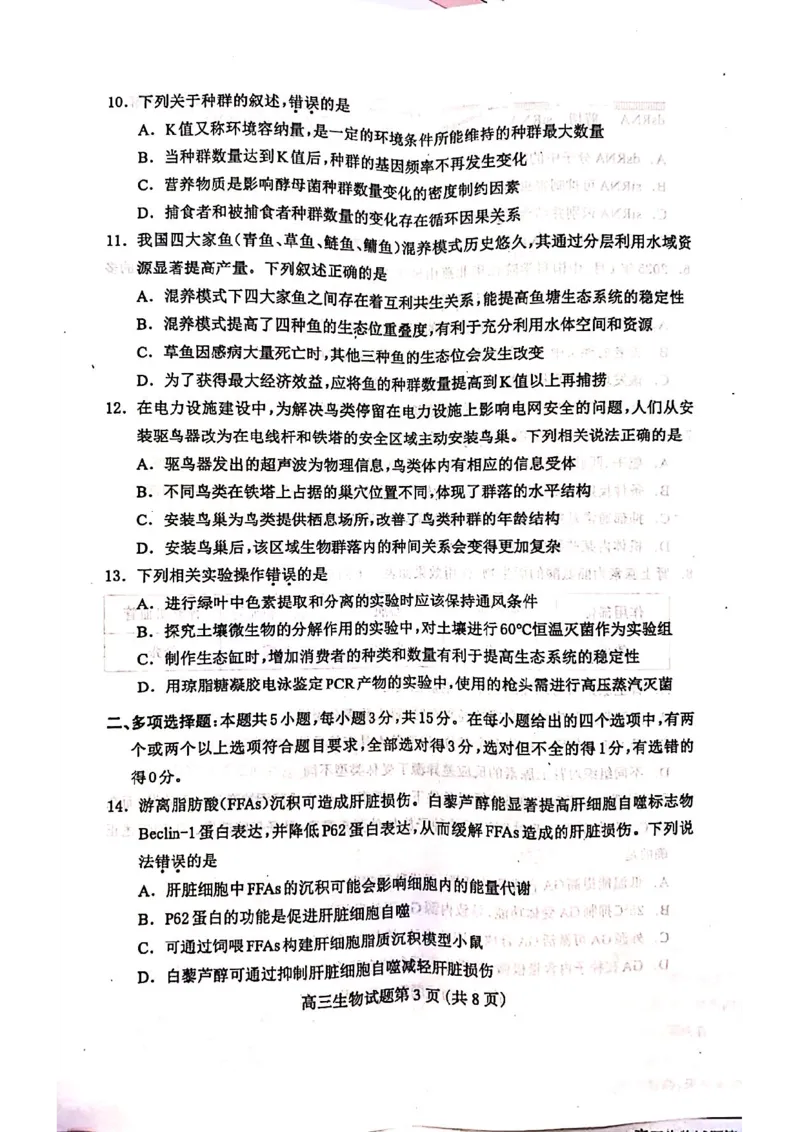 10. 下列关于种群的叙述,错误的是
A. K值又称环境容纳量,是一定的环境条件所能维持的种群最大数量
B. 当种群数量达到K值后,种群的基因频率不再发生变化
C. 营养物质是影响酵母菌种群数量变化的密度制约因素
D. 捕食者和被捕食者种群数量的变化存在循环因果关系
11. 我国四大家鱼(青鱼、草鱼、鲢鱼、鳙鱼)混养模式历史悠久,其通过分层利用水域资
源显著提高产量。下列叙述正确的是
A. 混养模式下四大家鱼之间存在着互利共生关系,能提高鱼塘生态系统的稳定性
B. 混养模式提高了四种鱼的生态位重叠度,有利于充分利用水体空间和资源
C. 草鱼因感病大量死亡时,其他三种鱼的生态位会发生改变
D. 为了获得最大经济效益,应将鱼的种群数量提高到K值以上再捕捞
12. 在电力设施建设中,为解决鸟类停留在电力设施上影响电网安全的问题,人们从安
装驱鸟器改为在电线杆和铁塔的安全区域主动安装鸟巢。下列相关说法正确的是
A. 驱鸟器发出的超声波为物理信息,鸟类体内有相应的信息受体
B. 不同鸟类在铁塔上占据的巢穴位置不同,体现了群落的水平结构
C. 安装鸟巢为鸟类提供栖息场所,改善了鸟类种群的年龄结构
D. 安装鸟巢后,该区域生物群落内的种间关系会变得更加复杂
13. 下列相关实验操作错误的是
A. 进行绿叶中色素提取和分离的实验时应该保持通风条件
B. 探究土壤微生物的分解作用的实验中,对土壤进行60℃恒温灭菌作为实验组
C. 制作生态缸时,增加消费者的种类和数量有利于提高生态系统的稳定性
D. 用琼脂糖凝胶电泳鉴定PCR产物的实验中,使用的枪头需进行高压蒸汽灭菌
二、多项选择题:本题共5小题,每小题3分,共15分。在每小题给出的四个选项中,有两
个或两个以上选项符合题目要求,全部选对得3分,选对但不全的得1分,有选错的
得0分。
14. 游离脂肪酸(FFAs)沉积可造成肝脏损伤。白藜芦醇能显著提高肝细胞自噬标志物
Beclin-1蛋白表达,并降低P62蛋白表达,从而缓解FFAs造成的肝脏损伤。下列说
法错误的是
A. 肝脏细胞中FFAs的沉积可能会影响细胞内的能量代谢
B. P62蛋白的功能是促进肝脏细胞自噬
C. 可通过饲喂FFAs构建肝细胞脂质沉积模型小鼠
D. 白藜芦醇可通过抑制肝脏细胞自噬减轻肝脏损伤
高三生物试题第3页(共8页)